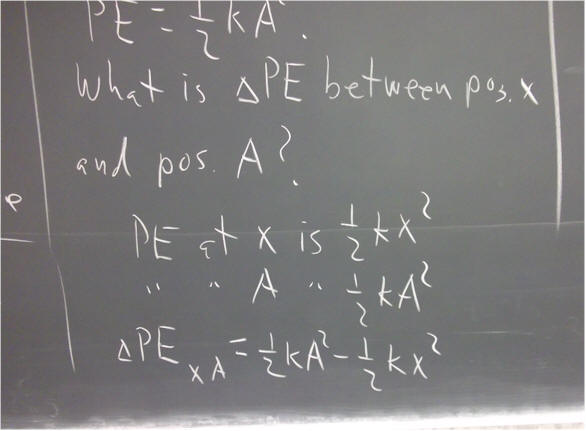 PE = 1/2 kA².
What is ΔPE between pos. x
and pos. A?
PE at x is 1/2 kx²
" " A " 1/2 kA²
ΔPE xA = 1/2 kA² - 1/2 kx²